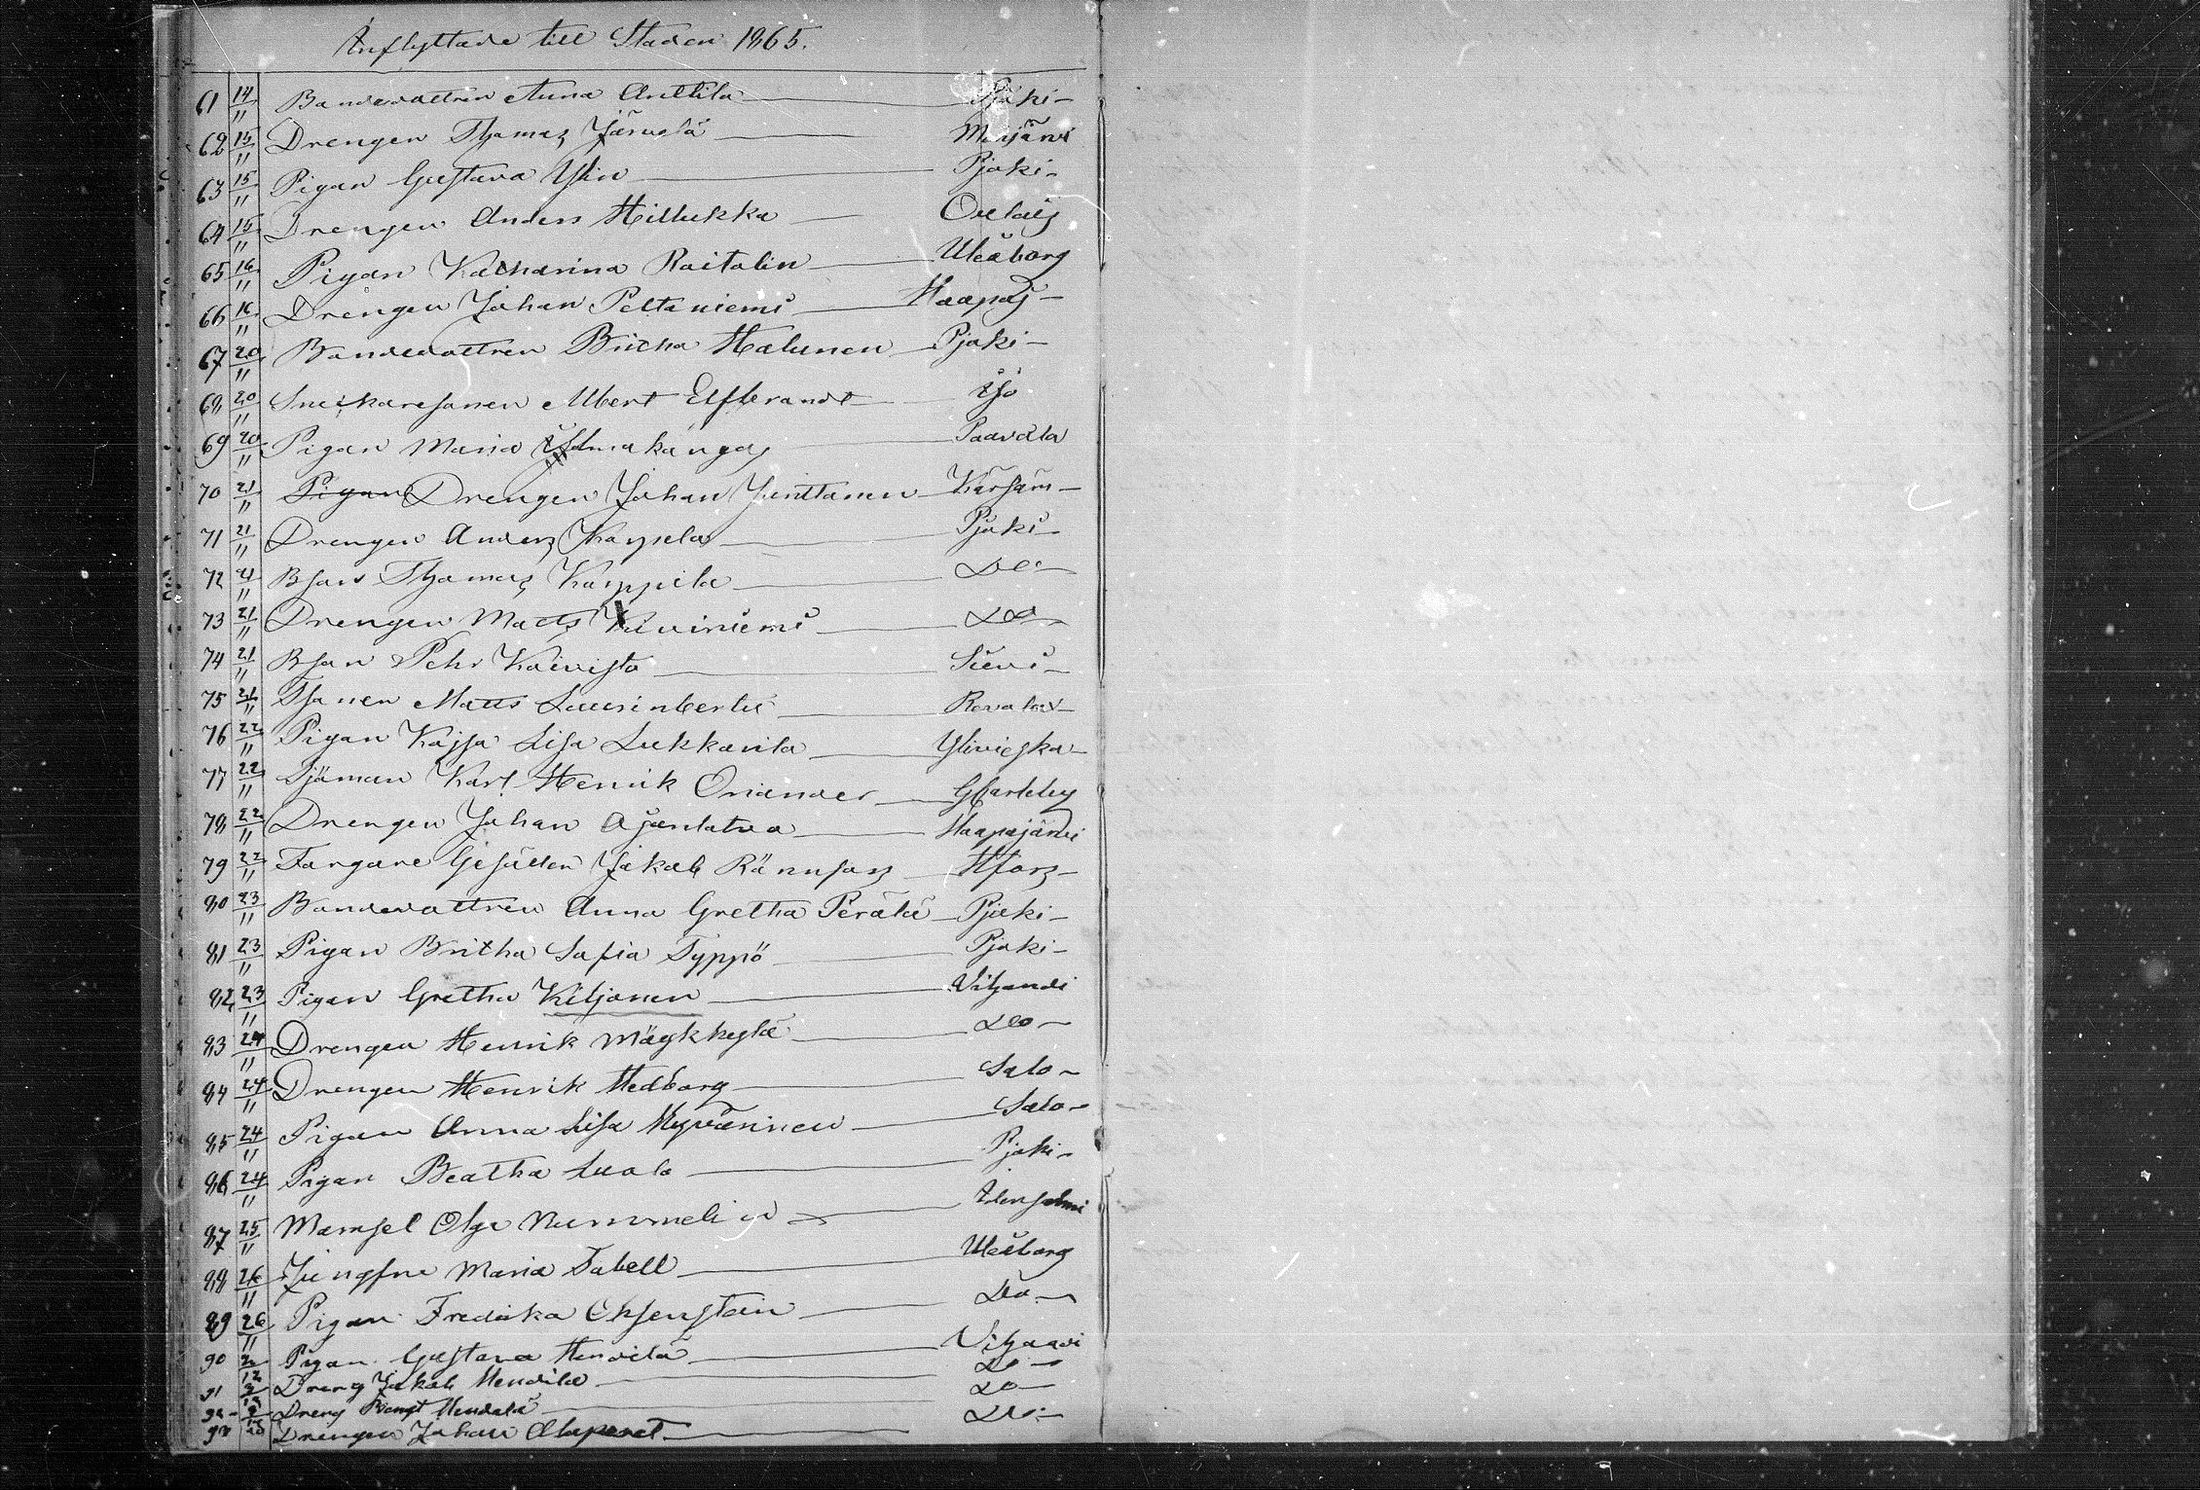 Inflyttade till Staden 1865.
61 14/11 Bondedottren Anna Anttila Pjoki
62 15/11 Drengen Thomas Järvelä Merijärvi
63 15/11 Pigan Gustava Ylin Pjoki
64 15/11 Drengen Anders Hillukka Oulais
65 16/11 Pigan Katharina Raitalin Uleåborg
66 16/11 Drengen Johan Peltoniemi Haapaj
67 20/11 Bondedottren Britha Halunen Pjoki
68 20/11 Snickaresonen Albert Elfbrandt Ijo
69 20/11 Pigan Maria Ylmakangas Paavola
70 21/11 Pigan Drengen Johan Junttanen Kärsäm
71 21/11 Drengen Anders Karpela Pjoki
72 21/11 Bson Thomas Karppila Do
73 21/11 Drengen Matts Kiviniemi Do
74 21/11 Bson Pehr Koivisto Sievi
75 21/11 Matts Revolax
76 22/11 Pigan Kajsa Lisa Lukkarila Ylivieska
77 22/11 Sjöman Karl Henrik Oriander Glkarleby
78 22/11 Drengen Johan Ojanlatva Haapajärvi
79 22/11 Fargare Gesällen Jakob Rännfors Hfors
80 23/11 Bondedottren Anna Gretha Perälä Pjoki
81 23/11 Pigan Britha Sofia Typpö Pjoki
82 23/11 Pigan Gretha Kiljonen Vihandi
83 24/11 Drengen Henrik Mäykkylä Do
84 24/11 Drengen Henrik Hedborg Salo
85 24/11 Pigan Anna Lisa Hyvärinen Salo
86 24/11 Pigan Beatha Luola Pjoki
87 25/11 Mamsel Olga Nummelin Idensalmi
88 26/11 Jungfru Maria Tabell Uleåborg
89 26/11 Pigan Fredrika Oksenstein Do
90 Pigan Gustava Hendilä Vihandi
91 Dreng Jakob Hendilä Do
92 Dreng Bengt Do
93 Drengen Johan Do